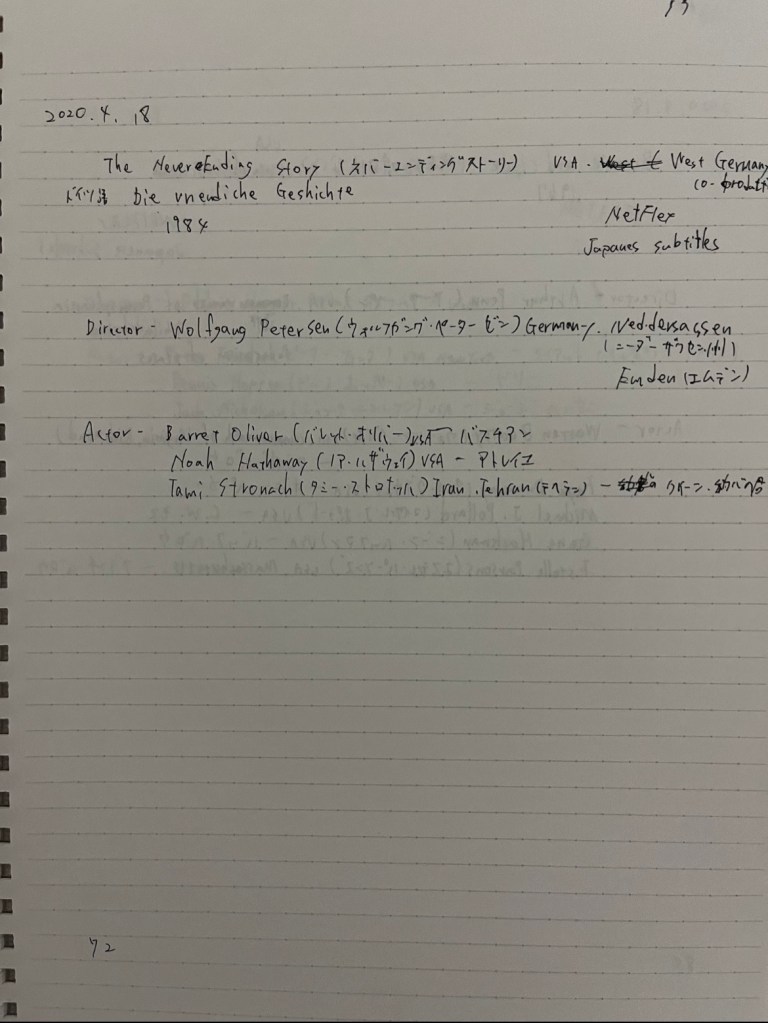 2020.4.18
The NevereEnding Story (ネバーエンディングストーリー) USA. West Germany
co-producti
ドイツ語 Die unendiche Geshichte
1984
NetFlex
Japanes subtitles
Director - Wolfgang Petersen (ウォルフガング・ペーターゼン) Germany. Neddersassen
(ニーダーザクセン州)
Emden (エムデン)
Actor - Barret Oliver (バレット・オリバー) USA - バスチアン
Noah Hathaway (ノア・ハザウェイ) USA - アトレイユ
Tami Stronach (タミー・ストロナッハ) Iran.Tehran (テヘラン) -
72